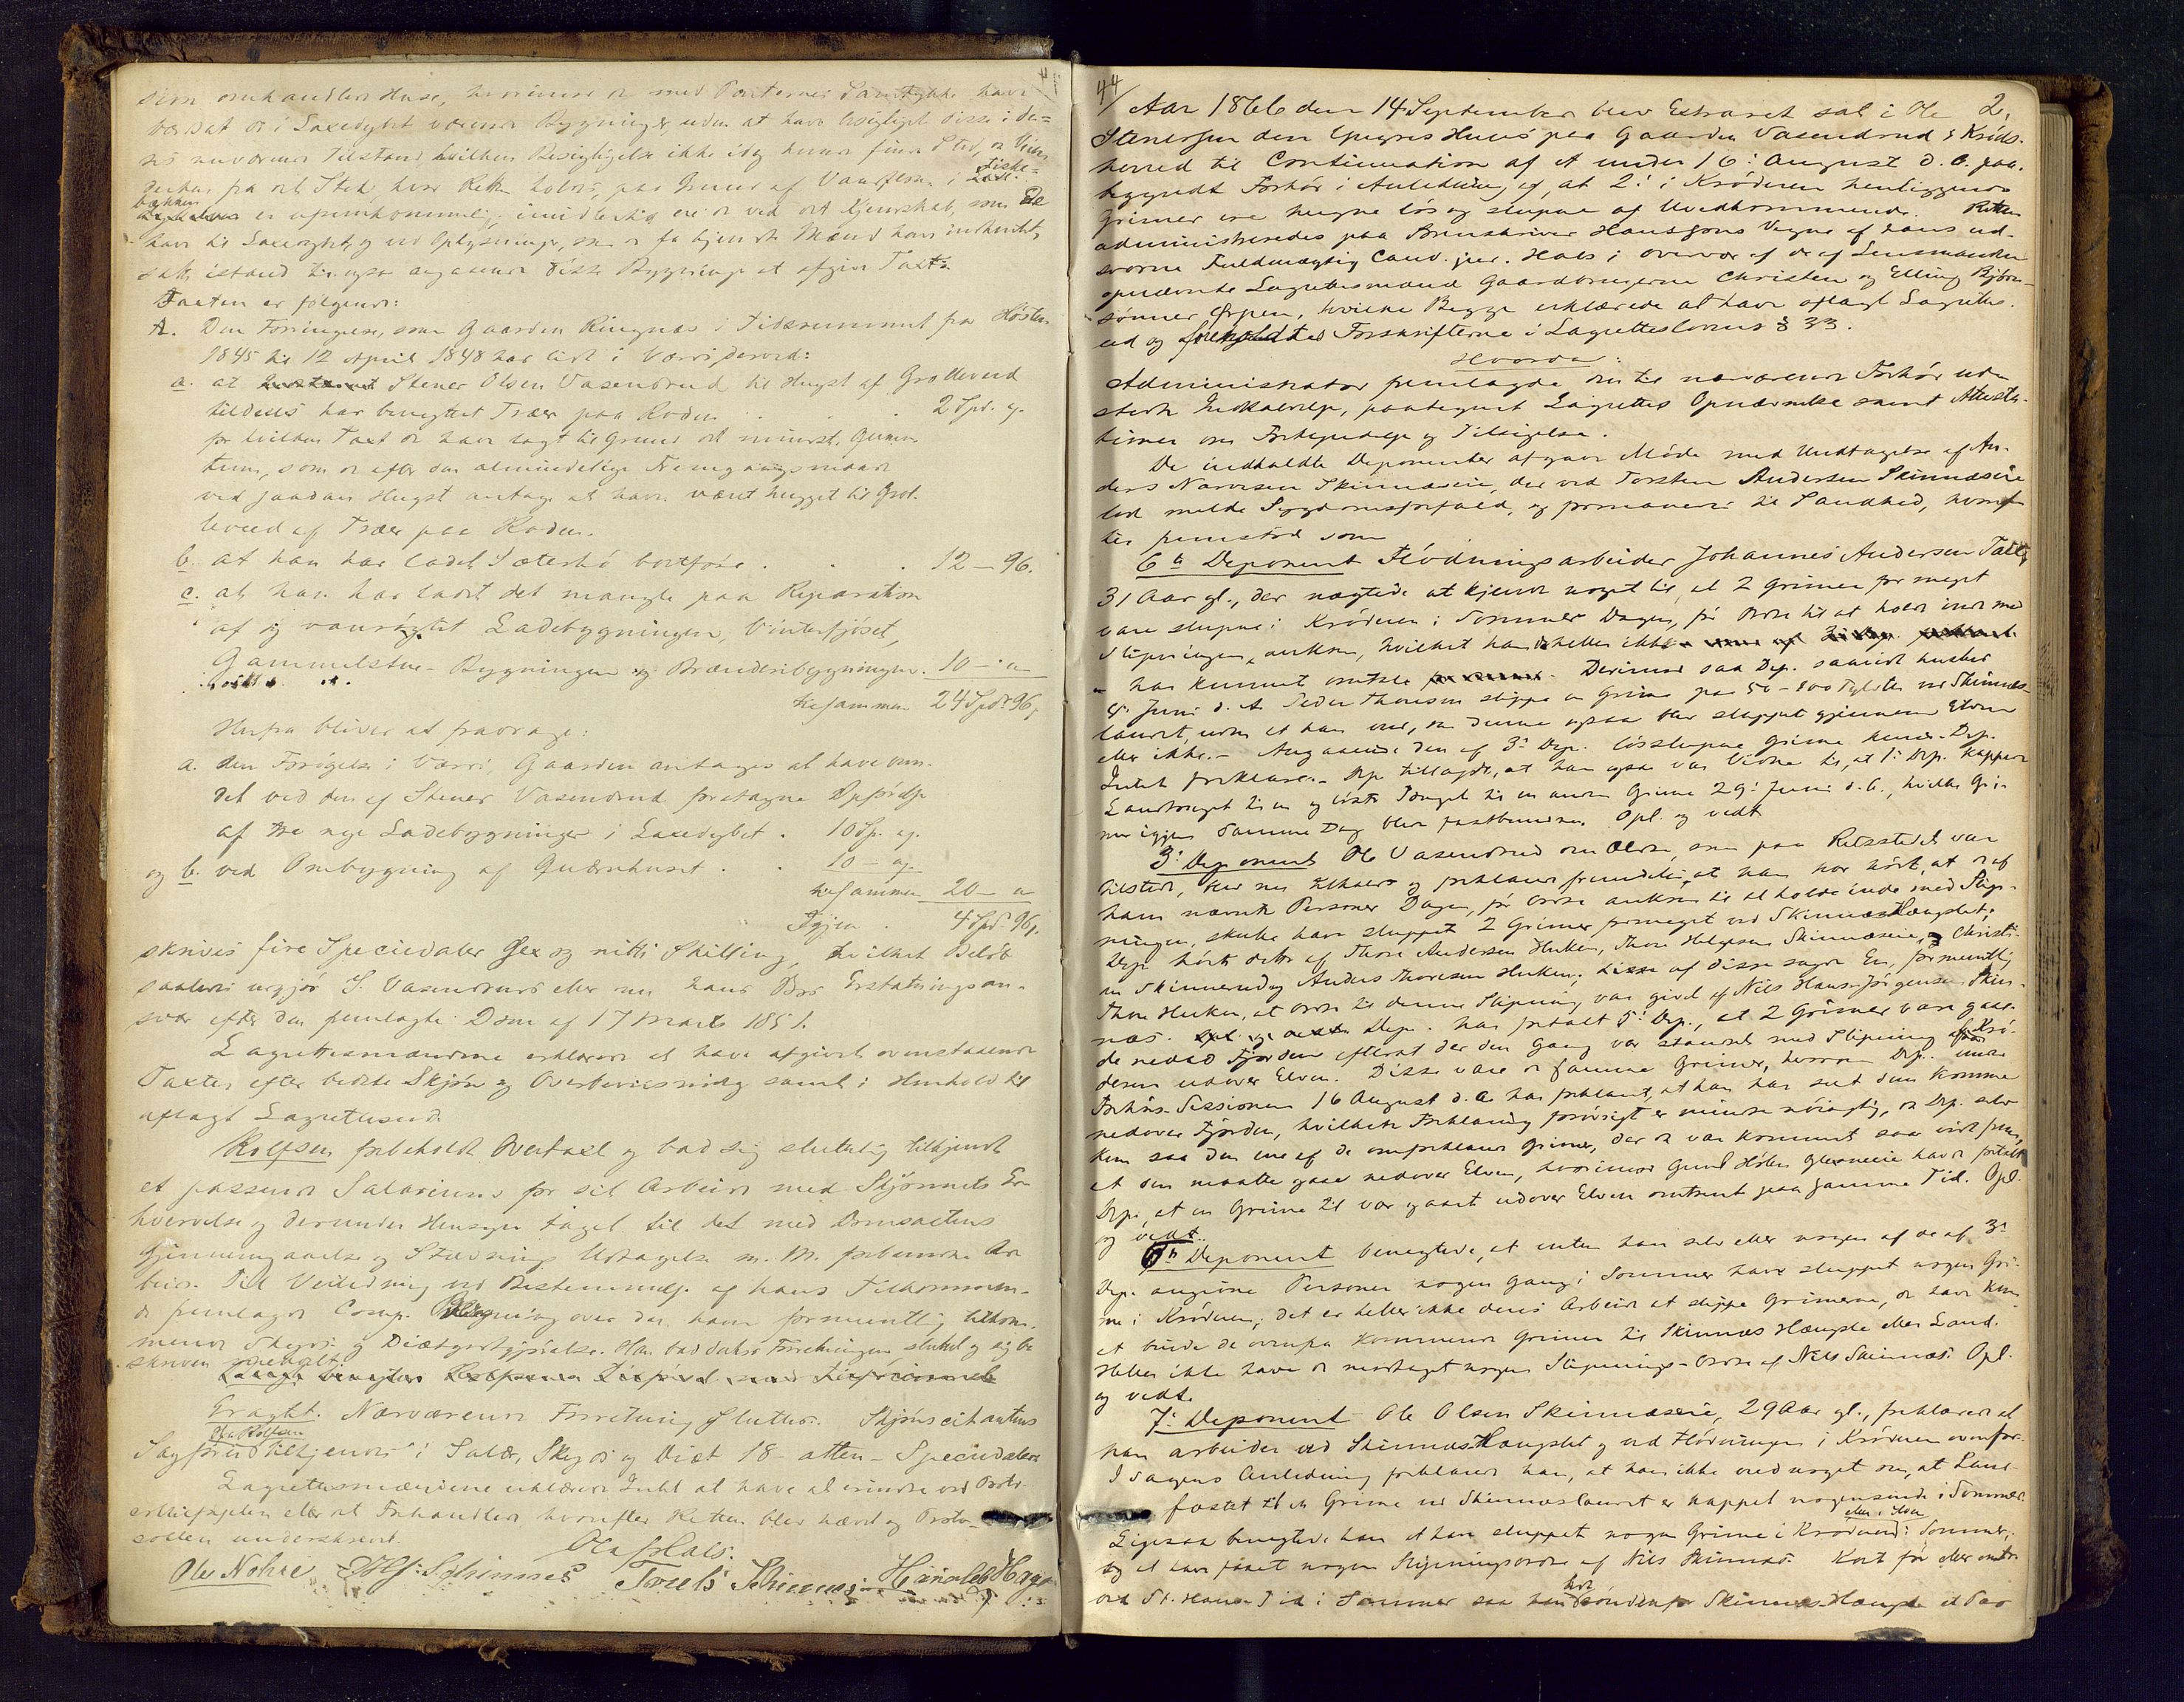 som omhandler Huse, hvorimod de med Parternes Samtykke have
bværdsat de i Laxedybet værende Bygninger, uden at have besigtiget disse i de-
res nuværende Tilstand, hvilken Besigtigelse ikke idag kunde finde Sted, da Veien
derhen fra det Sted, hvor Retten holdes, paa Grund af Vandflom i Fiske-
bækken er ufremkommelig; imidlertid ere de ved det Kjendskab, som De
have til Laxedybet, og ved Oplysninger, som de fra kjendte Mænd have indhentet,
satte istand til ogsaa angaaende disse Bygninger at afgive Taxt.
Taxten er følgende:
A. Den Forringelse, som Gaarden Ringnæs i Tidsrummet fra Høsten
1845 til 12 April 1848 har lidt i Værdi derved:
a. at Stener Olsen Vasendrud til Hugst af Grotteved
tildels har benyttet Træer paa Roden . . . 2 Spd. „
for hvilken Taxt de have lagt til Grund det mindste Qvan-
tum, som de efter den almindelige Fremgangsmaade
ved saadan Hugst antage at have været hugget til Grot-
teved af Træer paa Roden.
b. at han har ladet Sæterhø bortføre . . . 12 – 96.
c. at han har ladet det mangle paa Reparation
af og vanrøgtet Ladebygningen, Vinterfjøset,
Gammelstue-Bygningen og Brænderibygningen. 10 – „
tilsammen 24 Spd. 96
Herfra bliver at fradrage:
a. den Forøgelse i Værdi, Gaarden antages at have vun-
det ved den af Stener Vasendrud foretagne Opførelse
af tre nye Ladebygninger i Laxedybet . 10 Sp. „
og b. ved Ombygning af Qværnhuset . . 10 – „
tilsammen 20 – „
Igjen . 4 Spd. 96
skrives fire Speciedaler Sex og nitti Skilling, hvilket Beløb
saaledes udgjør S. Vasendruds eller nu hans Bos Erstatningsan-
svar efter den fremlagte Dom af 17 Marts 1851.
Lagrettesmændene erklærede at have afgivet ovenstaaende
Taxter efter bedste Skjøn og Overbeviisning samt i Henhold til
aflagt Lagretteseed.
Rolfsen forbeholdt Overtaxt og bad sig sluttelig tilkjendt
et passende Salarium for sit Arbeide med Skjønnets Er-
hvervelse og derunder Hensyn taget til det med Domsactens
Gjennemgaaelse og Stævnings Udtagelse m. M. forbundne Ar-
beide. Till Veiledning ved Bestemmelse af hans Tilkommen-
de fremlagde Comp. Regning over den ham formentlig tilkom-
mende Skyds og Diætgodtgjørelse. Han bad derhos Forretningen sluttet og sig be-
skreven meddelt.
Eragtet. Nærværende Forretning sluttes. Skjønscitantens
Sagfører Rolfsen tilkjendes i Salær, Skyds og Diæt 18 – atten – Speciedaler.
Lagrettesmændene erklærede Intet at have at erindre ved Proto-
collationen eller det Forhandlede, hvorefter Retten blev hævet og Proto-
collen underskrevet.
Hals.
Ole Nohre

44
2,
Aar 1866 den 14 September blev Extraret sat i Ole
Stenersen den Yngres Huus paa Gaarden Vasendrud i Kryds-
herred til Continuation af et under 16: August d. A. paa-
begyndt Forhør i Anledning af, at 2: i Krøderen henliggende
Grimer ere hugne løs og slupne af Uvedkommende. Retten
administreredes paa Sorenskriver Hansson's Vegne af hans ed-
svorne Fuldmægtig Cand. jur. Hals i Overvær af de af Lensmanden
opnævnte Lagrettesmænd Gaardbrugerne Christen og Elling Bjørn-
sønner Ørpen, hvilke Begge erklærede at have aflagt Lagrettes-
eed og foreholdtes Forskrifterne i Lagretteslovens § 33.
Hvorda:
Administrator fremlagde den til nærværende Forhør ud-
stedte Indkaldelse, paategnet Lagrettes Opnævnelse samt Attesta-
tioner om Forkyndelse og Tilsigelse.
De indkaldte Deponenter afgave Møde med Undtagelse af An-
ders Narvesen Skinnæseie, der ved Torsten Andersen Skinnæseie
lod melde Sygdomsforfald, og formanedes til Sandhed, hvoref-
ter fremstod som
6te Deponent Flødningsarbeider Johannes Andersen
31 Aar gl., der nægtede at kjende noget til, at 2 Grimer for meget
vare slupne i Krøderen i Sommer Dagen, før Ordre til at holde inde med
Slipningen ankom, hvilket han heller ikke
har kunnet omtale. Derimod saa Dep. saavidt husket
4: Juni d. A. Peder Thoresen slippe en Grime paa 50–100 Tylvter ved Skinnes-
landet, uden at han veed, om denne ogsaa blev sluppet gjennem Elven
eller ikke. – Angaaende den af 3: Dep. løsslupne Grime kunde Dep.
Intet forklare. – Dep. tillagde, at han ogsaa var Vidne til, at 1: Dep. kappede
Landtouget til en og løste Touget til en anden Grime 29: Juni d. A., hvilke Gri-
mer igjen samme Dag blev fastbundne. Opl. og vedt.
3: Deponent Ole Vasendrud den Ældre, som paa Retsstedet var
tilstede, blev nu tilkaldt og forklarede fremdeles, at han har hørt, at de af
ham nævnte Personer Dagen, før Ordre ankom til at holde inde med Slip-
ningen, skulde have sluppet 2 Grimer formeget ved Skinnæs-Hængslet;
Dep. hørte dette af Thore Andersen Huken, Thore Helgesen Skinnæseie, Christi-
an Skinnerud og Anders Thoresen Hukun; af disse sagde En, formentlig
Thore Hukun, at Ordre til denne Slipning var givet af Nils Hans-Jørgensen Skin-
næs. Dep. har fortalt 5: Dep., at 2 Grimer vare gaae-
de nedad Fjorden efterat der den Gang var standset med Slipning fra Krø-
deren udover Elven. Disse vare de samme Grimer, hvorom Dep. under
Forhørs-Sessionen 16 August d. A. har forklaret, at han har seet dem komme
nedover Fjorden, hvilken Forklaring forøvrigt er mindre nøiagtig, da Dep. selv
kun saa den ene af de omforklarede Grimer, der da var kommet saa vidt frem,
at den maatte gaae nedover Elven, hvorimod Gunl. Holen Glesneeie havde fortalt
Dep., at en Grime til var gaaet udover Elven omtrent paa samme Tid. Opl.
og vedt.
6te Deponent benegtede, at enten han selv eller nogen af de af 3:
Dep. angivne Personer nogen Gang i Sommer have sluppet nogen Gri-
me i Krøderen; det er heller ikke deres Arbeide at slippe Grimerne, de have kun
at binde de ovenfra kommende Grimer til Skinnæs Hængsle eller Land.
Heller ikke have de modtaget nogen Slipnings-Ordre af Nils Skinnæs. Opl.
og vedt.
7: Deponent Ole Olsen Skinnæseie, 29 Aar gl., forklarede at
han arbeider ved Skinnæs Hængslet og ved Flødningen i Krøderen ovenfor.
I Sagens Anledning forklarede han, at han ikke veed noget om, at Land-
fæstet til en Grime ved Skinnæslandet er kappet nogensinde i Sommer.
Ligesaa benegtede han at have sluppet nogen Grime i Krøderen eller i Elven i Sommer,
og at have faaet nogen Slipningsordre af Nils Skinnæs. Kort før eller omtr.
ved St. Hans-Tid i Sommer saa han nordenfor Skinnes-Hængsle et Par